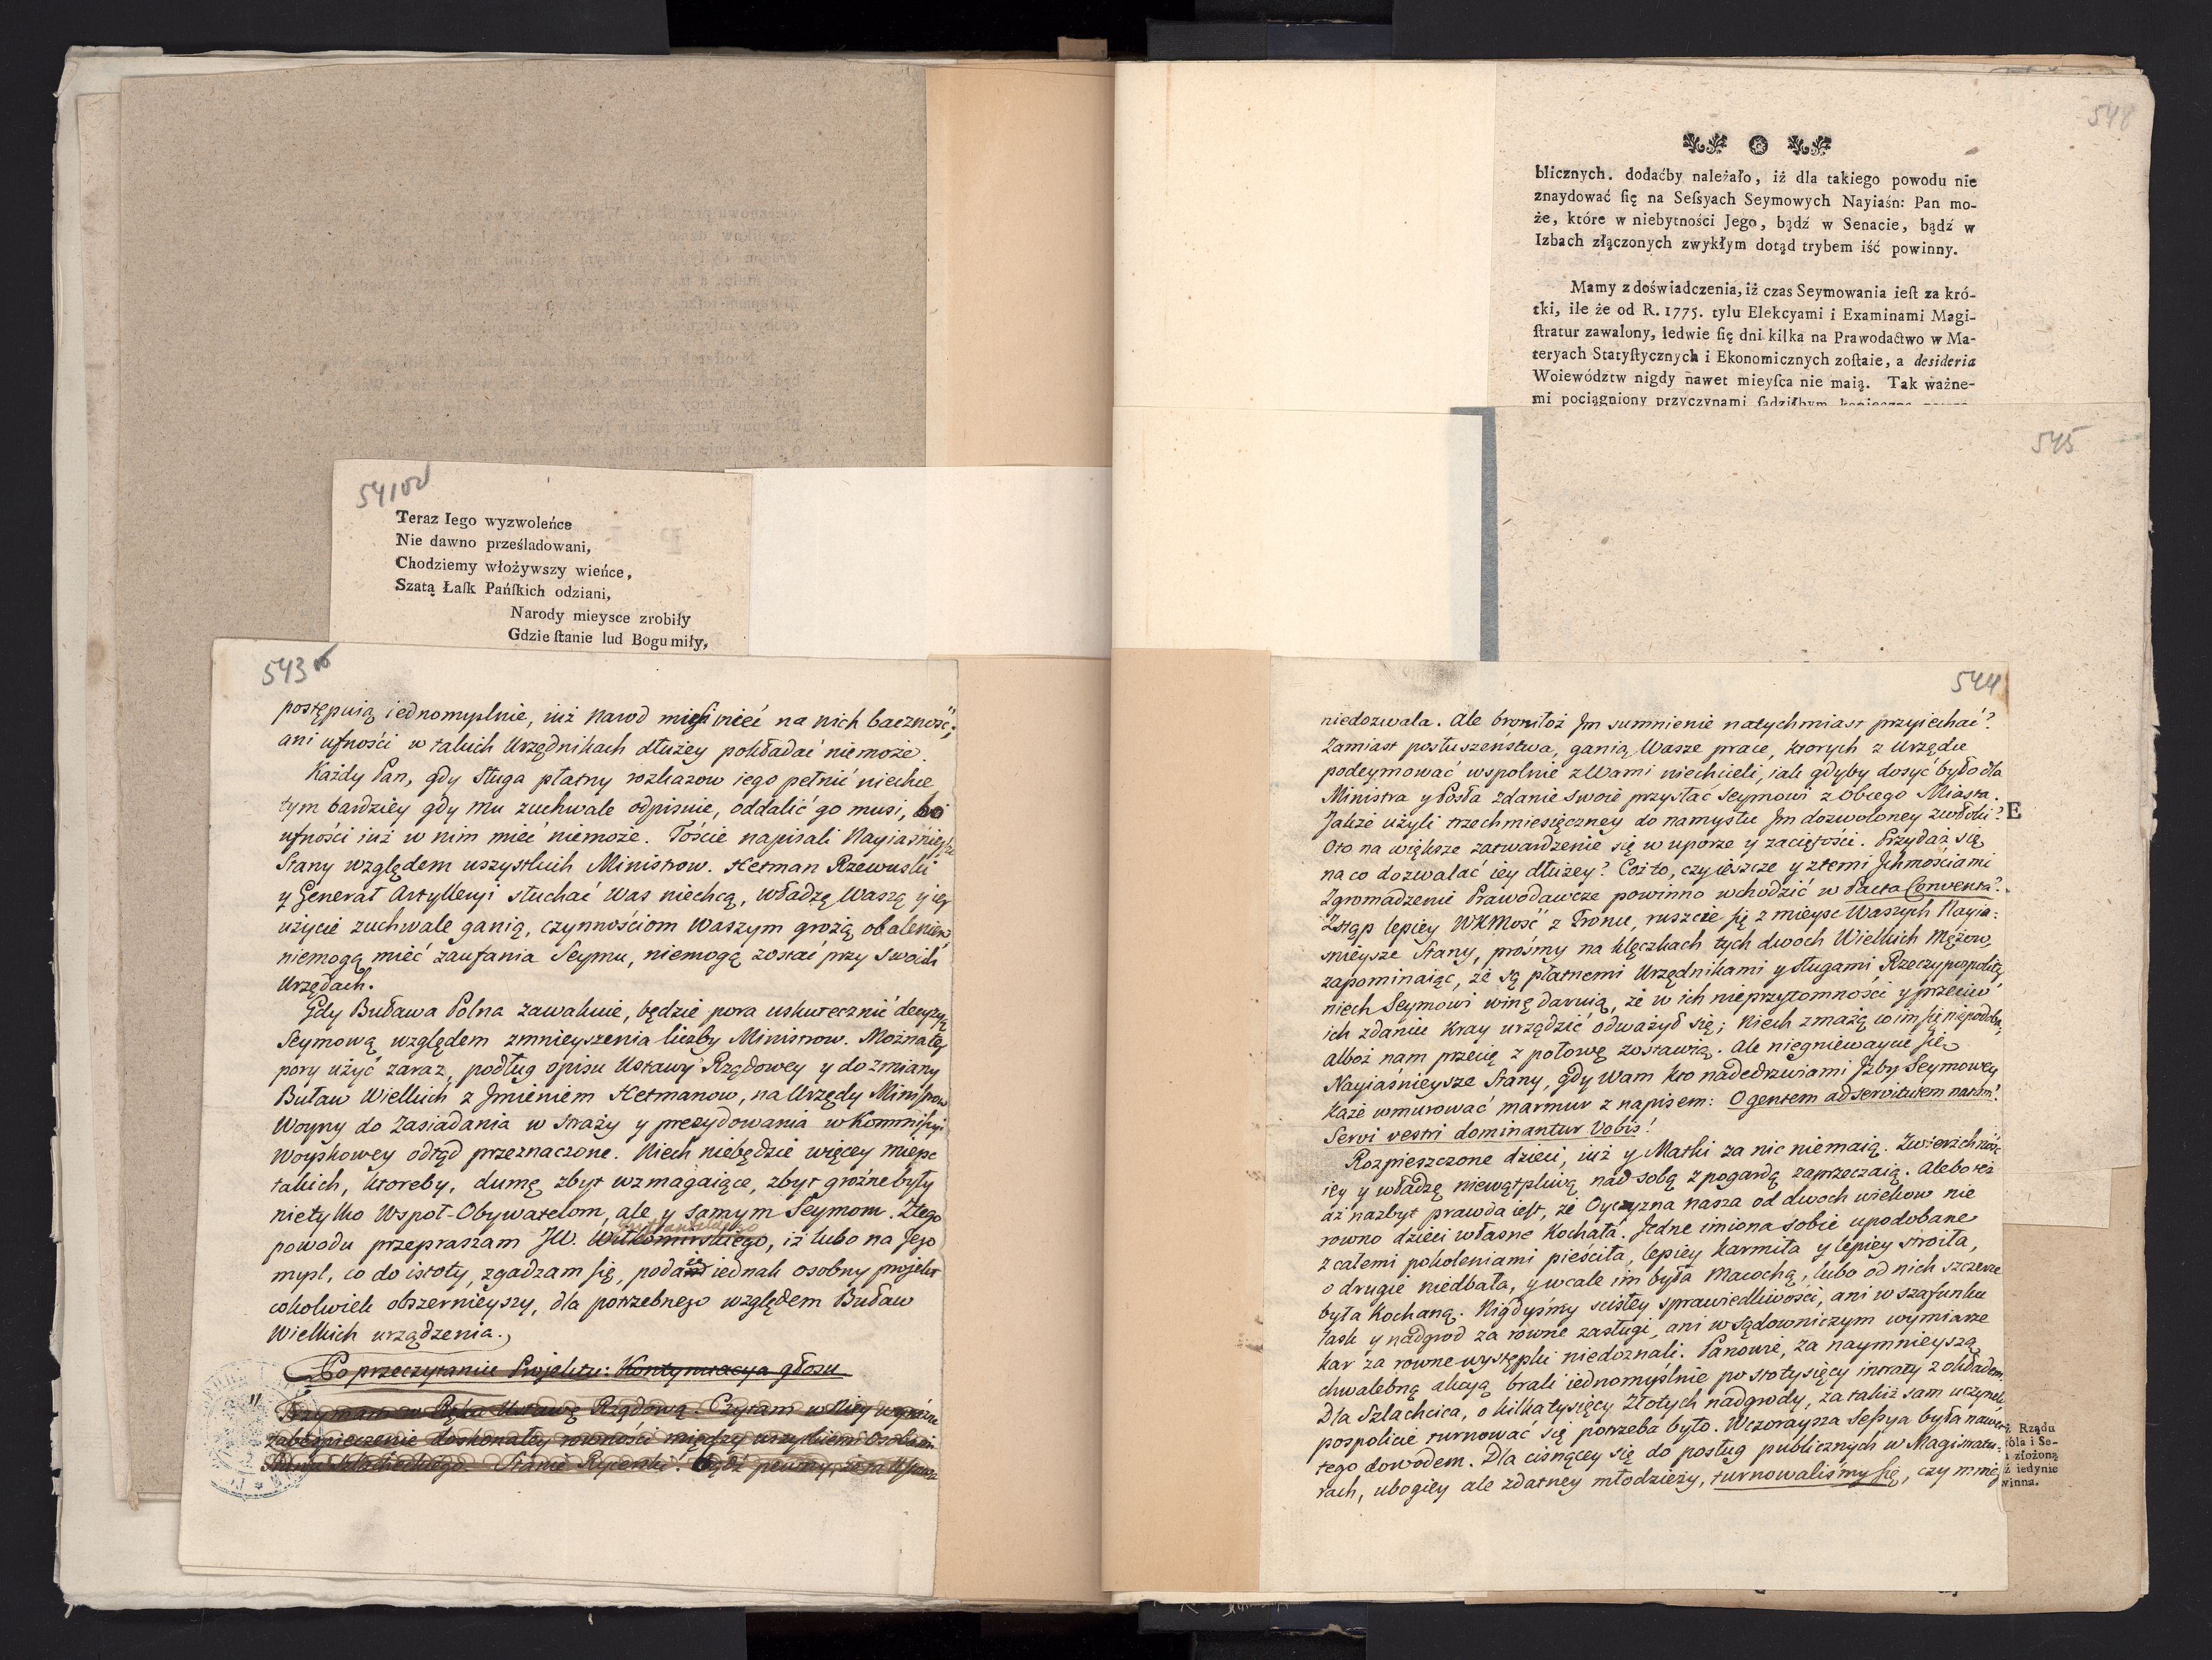 541v
Teraz Iego wyzwoleńce
Nie dawno prześladowani,
Chodziemy włożywszy wieńce,
Szatą Łaſk Pańſkich odziani,
Narody mieysce zrobiły
Gdzie ſtanie lud Bogu miły,
543v
postępuią iednomyslnie, iuż Narod mieć na nich baczność,
ani ufności w takich Urzędnikach dłużey pokładać niemoże.
Każdy Pan, gdy Sługa płatny rozkazow iego pełnić niechce
tym bardziey gdy mu zuchwale odpisuie, oddalić go musi, bo
ufności iuż w nim mieć niemoże. Toście napisali Nayiaśnieysze
Stany względem wszystkich Ministrow. Hetman Rzewuski
y Generał Artylleryi słuchać Was niechcą, władzę Waszą y iey
użycie zuchwale ganią, czynnościom Waszym grożą obaleniem
niemogą mieć zaufania Seymu, niemogą zostać przy swoich
Urzędach.
Gdy Buława Polna zawakuie, będzie pora uskutecznić decyzyą
Seymową względem zmnieyszenia liczby Ministrow. Możnatey
pory użyć zaraz, podług opisu Ustawy Rządowey y do zmiany
Buław Wielkich z Jmieniem Hetmanow, na Urzędy Ministrow
Woyny do Zasiadania w Straży y prezydowania w Kommissyi
Woyskowey odtąd przeznaczone. Niech niebędzie więcey mieysc
takich, ktoreby, dumę zbyt wzmagaiące, zbyt groźne były
nietylko Wspoł-Obywatelom, ale y samym Seymom. Ztego
powodu przepraszam JW. Wiłkomirskiego, iż lubo na Jego
mysl, co do istoty, zgadzam się, podaię iednak osobny projekt
cokolwiek obszernieyszy, dla potrzebnego względem Buław
Wielkich urządzenia.
Po przeczytaniu Projektu: Kontynuacya głosu
Trzymam w Ręku Ustawę Rządową. Czytam w Niey wyraźne
zabezpieczenie doskonałey rowności między wszystkiemi Osobami
Stanu Szlacheckiego. Stanie Rycerski! Bądź pewny, że ta Ustawa
548
blicznych. dodaćby należało, iż dla takiego powodu nie
znaydować ſię na Seſsyach Seymowych Nayiaśn: Pan mo-
że, które w niebytności Jego, bądź w Senacie, bądź w
Izbach złączonych zwykłym dotąd trybem iść powinny.
Mamy z doświadczenia, iż czas Seymowania ieſt za kró-
tki, ile że od R. 1775. tylu Elekcyami i Examinami Magi-
ſtratur zawalony, ledwie ſię dni kilka na Prawodactwo w Ma-
teryach Statyſtycznych i Ekonomicznych zoſtaie, a desideria
Woiewództw nigdy nawet mieyſca nie maią. Tak ważne-
mi pociągniony przyczynami ſądziłbym
545
544
niedozwala. Ale broniłoż Jm sumnienie natychmiast przyiechać?
Zamiast posłuszeństwa, ganią Wasze prace, ktorych z Urzędu
podeymować wspolnie z Wami niechcieli, iak gdyby dosyć było dla
Ministra y Posła zdanie swoie przysłać Seymowi z Obcego Miasta.
Jakże użyli trzechmiesięczney do namysłu Jm dozwoloney zwłoki?
Oto na większe zatwardzenie się w uporze y zaciętości. Przydaż się
na co dozwalać iey dłużey? Coż to, czy ieszcze y z temi Jchmościami
Zgromadzenie Prawodawcze powinno wchodzić w Pacta Conventa?
Zstąp lepiey WKMość z Tronu, ruszcie się z mieysc Waszych Nayia:
śnieysze Stany, prośmy na klęczkach tych dwoch Wielkich Mężow,
zapominaiąc, że są płatnemi Urzędnikami y sługami Rzeczypospolitey
niech Seymowi winę daruią, że w ich nieprzytomności y przeciw
ich zdaniu Kray urządzić odważył się; Niech zmażą co im się niepodoba,
alboż nam przecię z połowę zostawią. Ale niegniewaycie się
Nayiaśnieysze Stany, gdy Wam kto nadedrzwiami Jzby Seymowey
każe wmurować marmur z napisem: O gentem ad servitutem natam!
Servi vestri dominantur Vobis!
Rozpieszczone dzieci, iuż y Matki za nic niemaią. Zwierzchność
iey y władzę niewątpliwą nad sobą z pogardą zaprzeczaią. Alebo też
aż nazbyt prawda iest, że Oyczyzna nasza od dwoch wiekow nie
rowno dzieci własne Kochała. Jedne imiona sobie upodobane
z całemi pokoleniami pieściła, lepiey karmiła y lepiey stroiła,
o drugie niedbała, y wcale im była Macochą, lubo od nich szczerze
była Kochaną. Nigdyśmy scisłey sprawiedliwości, ani w szafunku
łask y nadgrod za rowne zasługi, ani w sądowniczym wymiarze
kar za rowne występki niedoznali. Panowie, za naymnieyszą
chwalebną akcyą brali iednomyślnie po sto tysięcy intraty z okładem.
Dla Szlachcica, o kilka tysięcy Złotych nadgrody, za takiż sam uczynek
pospolicie turnować się potrzeba było. Wczoraysza Sessya była nawet
tego dowodem. Dla cisnącey się do posług publicznych w Magistratu:
rach, ubogiey ale zdatney młodzieży, turnowaliśmy się, czy
E
ż Rządu
óla i Se-
i złożoną
ż iedynie
winna.